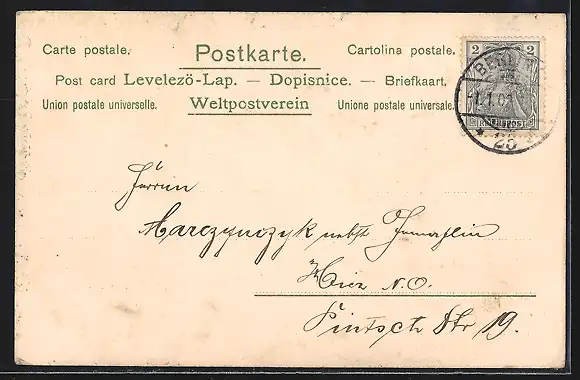 Carte postale. Postkarte. Cartolina postale.
Post card Levelezö-Lap. — Dopisnice. — Briefkaart.
Union postale universelle. Weltpostverein Unione postale universale.
2 2
BERLIN
1.1.02
Herrn
Marczynczyk nebst Familie
Hier N.O.
Pintsch Str 19.